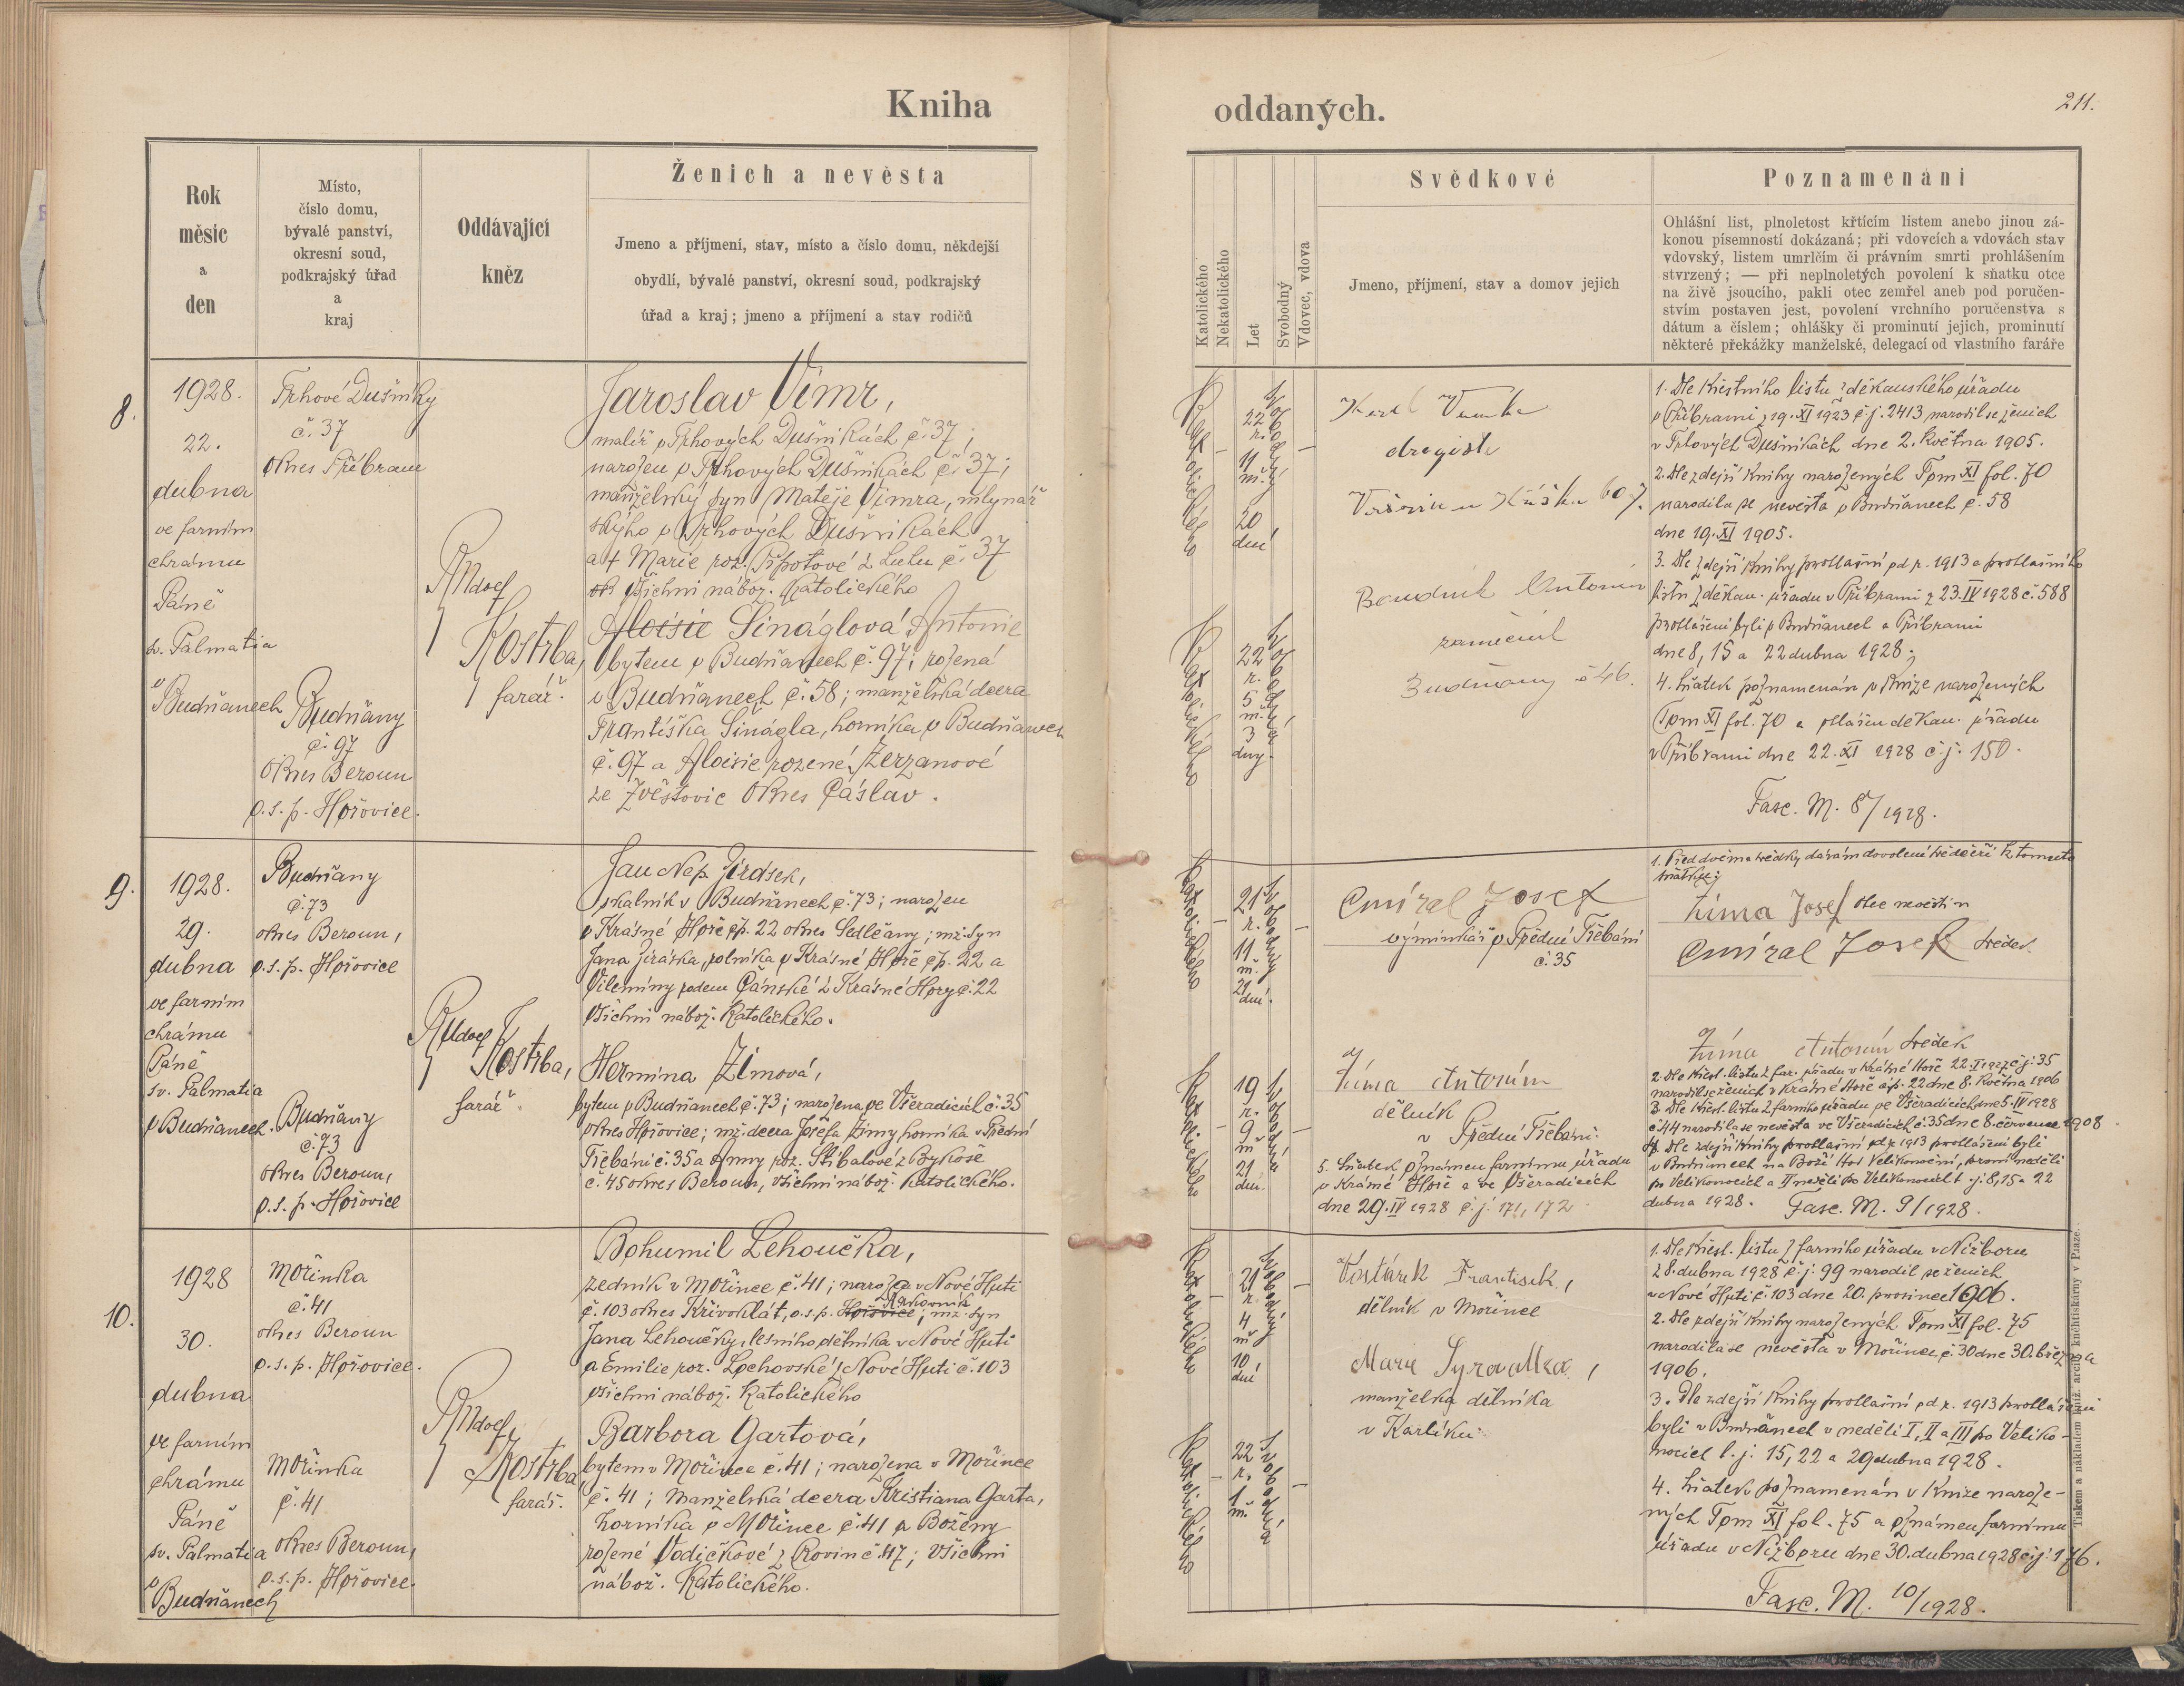 Kniha
oddaných.
211.
Rok
měsíc
a
den
Místo,
číslo domu,
bývalé panství,
okresní soud,
podkrajský úřad
a
kraj
Oddávající
kněz
Ženich a nevěsta
Jmeno a příjmení, stav, místo a číslo domu, někdejší
obydlí, bývalé panství, okresní soud, podkrajský
úřad a kraj; jmeno a příjmení a stav rodičů
Katolického
Nekatolického
Let
Svobodný
Vdovec, vdova
Svědkové
Jmeno, příjmení, stav a domov jejich
Poznamenání
Ohlášní list, plnoletost křtícím listem anebo jinou zá-
konou písemností dokázaná; při vdovcích a vdovách stav
vdovský, listem umrlčím či právním smrti prohlášením
stvrzený; — při neplnoletých povolení k sňatku otce
na živě jsoucího, pakli otec zemřel aneb pod poručen-
stvím postaven jest, povolení vrchního poručenstva s
dátum a číslem; ohlášky či prominutí jejich, prominutí
některé překážky manželské, delegací od vlastního faráře
8.
1928.
22.
dubna
ve farním
chrámu
Páně
sv. Palmatia
v Budňanech
Trhové Dušníky
č. 37
okres Příbram
Budňany
č. 97
okres Beroun
o.s.p. Hořovice.
Rudolf
Kostrba,
farář.
Jaroslav Vimr,
malíř v Trhových Dušníkách č. 37;
narozen v Trhových Dušníkách č. 37;
manželský syn Matěje Vimra, mlynář
ského v Trhových Dušníkách
a † Marie roz. Pipotové z Luhu č. 37
všichni nábož. katolického
Aloisie Sináglová Antonie
bytem v Budňanech č. 97; rozená
v Budňanech č. 58; manželská dcera
Františka Sinágla, horníka v Budňanech
č. 97 a Aloisie rozené Zerzanové
ze Zvěstovic okres Čáslav.
Katolického
22 r. 11 m. 20 dní
Svobodný
Katolického
22 r. 5 m. 3 dny.
Svobodná
Karel
drogista
Boudník Antonín
zámečník
Budňany č 46.
1. Dle křestního listu z děkanského úřadu
v Příbrami z 19. XI 1923 č.j. 2413 narodil se ženich
v Trhových Dušníkách dne 2. května 1905.
2. Dle zdejší knihy narozených Tom XI fol. 70
narodila se nevěsta v Budňanech č. 58
dne 19. XI 1905.
3. Dle zdejší knihy prohlášní od r. 1913 a prohlašního
listu z děkan. úřadu v Příbrami z 23. IV 1928 č. 588
prohlášeni byli v Budňanech a Příbrami
dne 8, 15 a 22 dubna 1928;
4. Sňatek poznamenán v knize narozených
Tom XI fol. 70 a ohlášen děkan. úřadu
v Příbrami dne 22. XI 1928 č.j. 150.
Fasc. M. 8/1928.
9.
1928.
29.
dubna
ve farním
chrámu
Páně
sv. Palmatia
v Budňanech.
Budňany
č. 73
okres Beroun,
o.s.p. Hořovice
Budňany
č. 73
okres Beroun,
o.s.p. Hořovice
Rudolf
Kostrba,
farář.
Jan Nep. Jirásek,
skalník v Budňanech č. 73; narozen
v Krásné Hoře čp. 22 okres Sedlčany; mž. syn
Jana Jiráska, rolníka v Krásné Hoře čp. 22 a
Vilemíny rodem Čánské z Krásné Hory č. 22
všichni nábož. katolického.
Hermina Zímová,
bytem v Budňanech č. 73; narozena ve Všeradicích č. 35
okres Hořovice; mž. dcera Josefa Zímy, horníka v Přední
Třebáni č. 35 a Anny roz. Stíbalové z Bykose
č. 45 okres Beroun, všichni nábož. katolického.
Katolického
21 r. 11 m. 21 dní.
Svobodný
Katolického
19 r. 9 m 21 dní.
Svobodná
Cmíral Josef
výminkář v Přední Třebáni
č. 35
Zíma Antonín
dělník
v Přední Třebáni.
5. Sňatek oznámen farnímu úřadu
v Krásné Hoře a ve Všeradicích
dne 29. IV 1928 č.j. 171, 172.
1. Před dvěma svědky dávám dovolení své dceři k tomuto
sňatku:
Zíma Josef otec nevěstin
Cmíral Josef svědek
Zíma Antonín svědek
2. Dle křest. listu z far. úřadu v Krásné Hoře 22. č.j. 35
narodil se ženich v Krásné Hoře čp. 22 dne 8. května 1906
3. Dle křest. listu z farního úřadu ve Všeradicích dne 5. IV 1928
č. 44 narodila se nevěsta ve Všeradicích č. 35 dne 8. července 1908.
4. Dle zdejší knihy prohlašní od r. 1913 prohlášeni byli
v Budňanech na Boží Hod Velikonoční, první neděli
po Velikonocích a II neděli po Velikonocích t.j. 8, 15 a 22
dubna 1928. Fasc. M. 9/1928.
10.
1928
30.
dubna
ve farním
chrámu
Páně
sv. Palmatia
v Budňanech
Mořinka
č. 41
okres Beroun
o.s.p. Hořovice.
Mořinka
č. 41
okres Beroun,
o.s.p. Hořovice.
Rudolf
Kostrba
farář.
Bohumil Lehoučka,
zedník v Mořince č. 41; narozen v Nové Huti
č. 103 okres Křivoklát, o.s.p. Hořovice Rakovník; mž. syn
Jana Lehoučky, lesního dělníka v Nové Huti
a Emilie roz. Lochovské z Nové Huti č. 103
všichni nábož. katolického
Barbora Gartová,
bytem v Mořince č. 41; narozena v Mořince
č. 41; manželská dcera Kristiana Garta,
horníka v Mořince č. 41 a Boženy
rozené Vodičkové z Rovin č. 47; všichni
nábož. katolického.
Katolického
21 r. 4 m 10 dní
Svobodný
Katolického
22 r. 1 m.
Svobodná
Vostárek František,
dělník v Mořince
Marie Syrovátka,
manželka dělníka
v Karlíku
1. Dle křest. listu z farního úřadu v Nižboru
z 8. dubna 1928 č.j. 99 narodil se ženich
v Nové Huti č. 103 dne 20. prosince 1906.
2. Dle zdejší knihy narozených. Tom XI fol. 75
narodila se nevěsta v Mořince č. 30 dne 30. března
1906.
3. Dle zdejší knihy prohlašní od r. 1913 prohlášeni
byli v Budňanech v neděli I, II a III po Veliko-
nocích t.j. 15, 22 a 29 dubna 1928.
4. Sňatek poznamenán v knize naroze-
ných Tom XI fol. 75 a oznámen farnímu
úřadu v Nižboru dne 30. dubna 1928 č.j. 176.
Fasc. M. 10/1928.